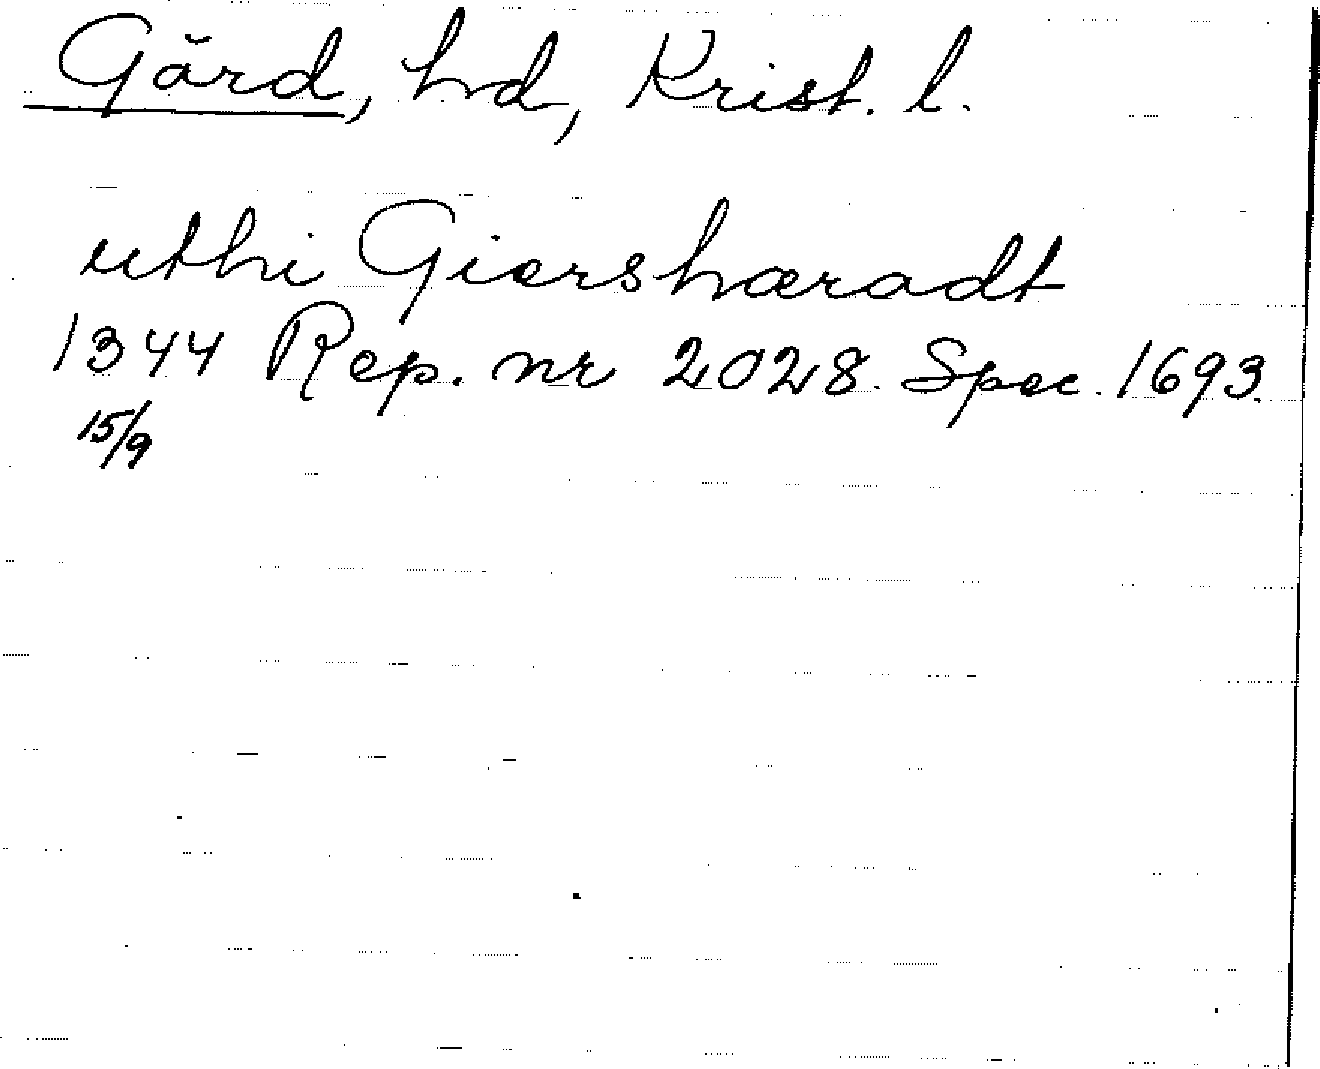 Gärd, hd, Krist. l.
uthi Giershæradt
1344 Rep. nr 2028. Spec. 1693.
15/9